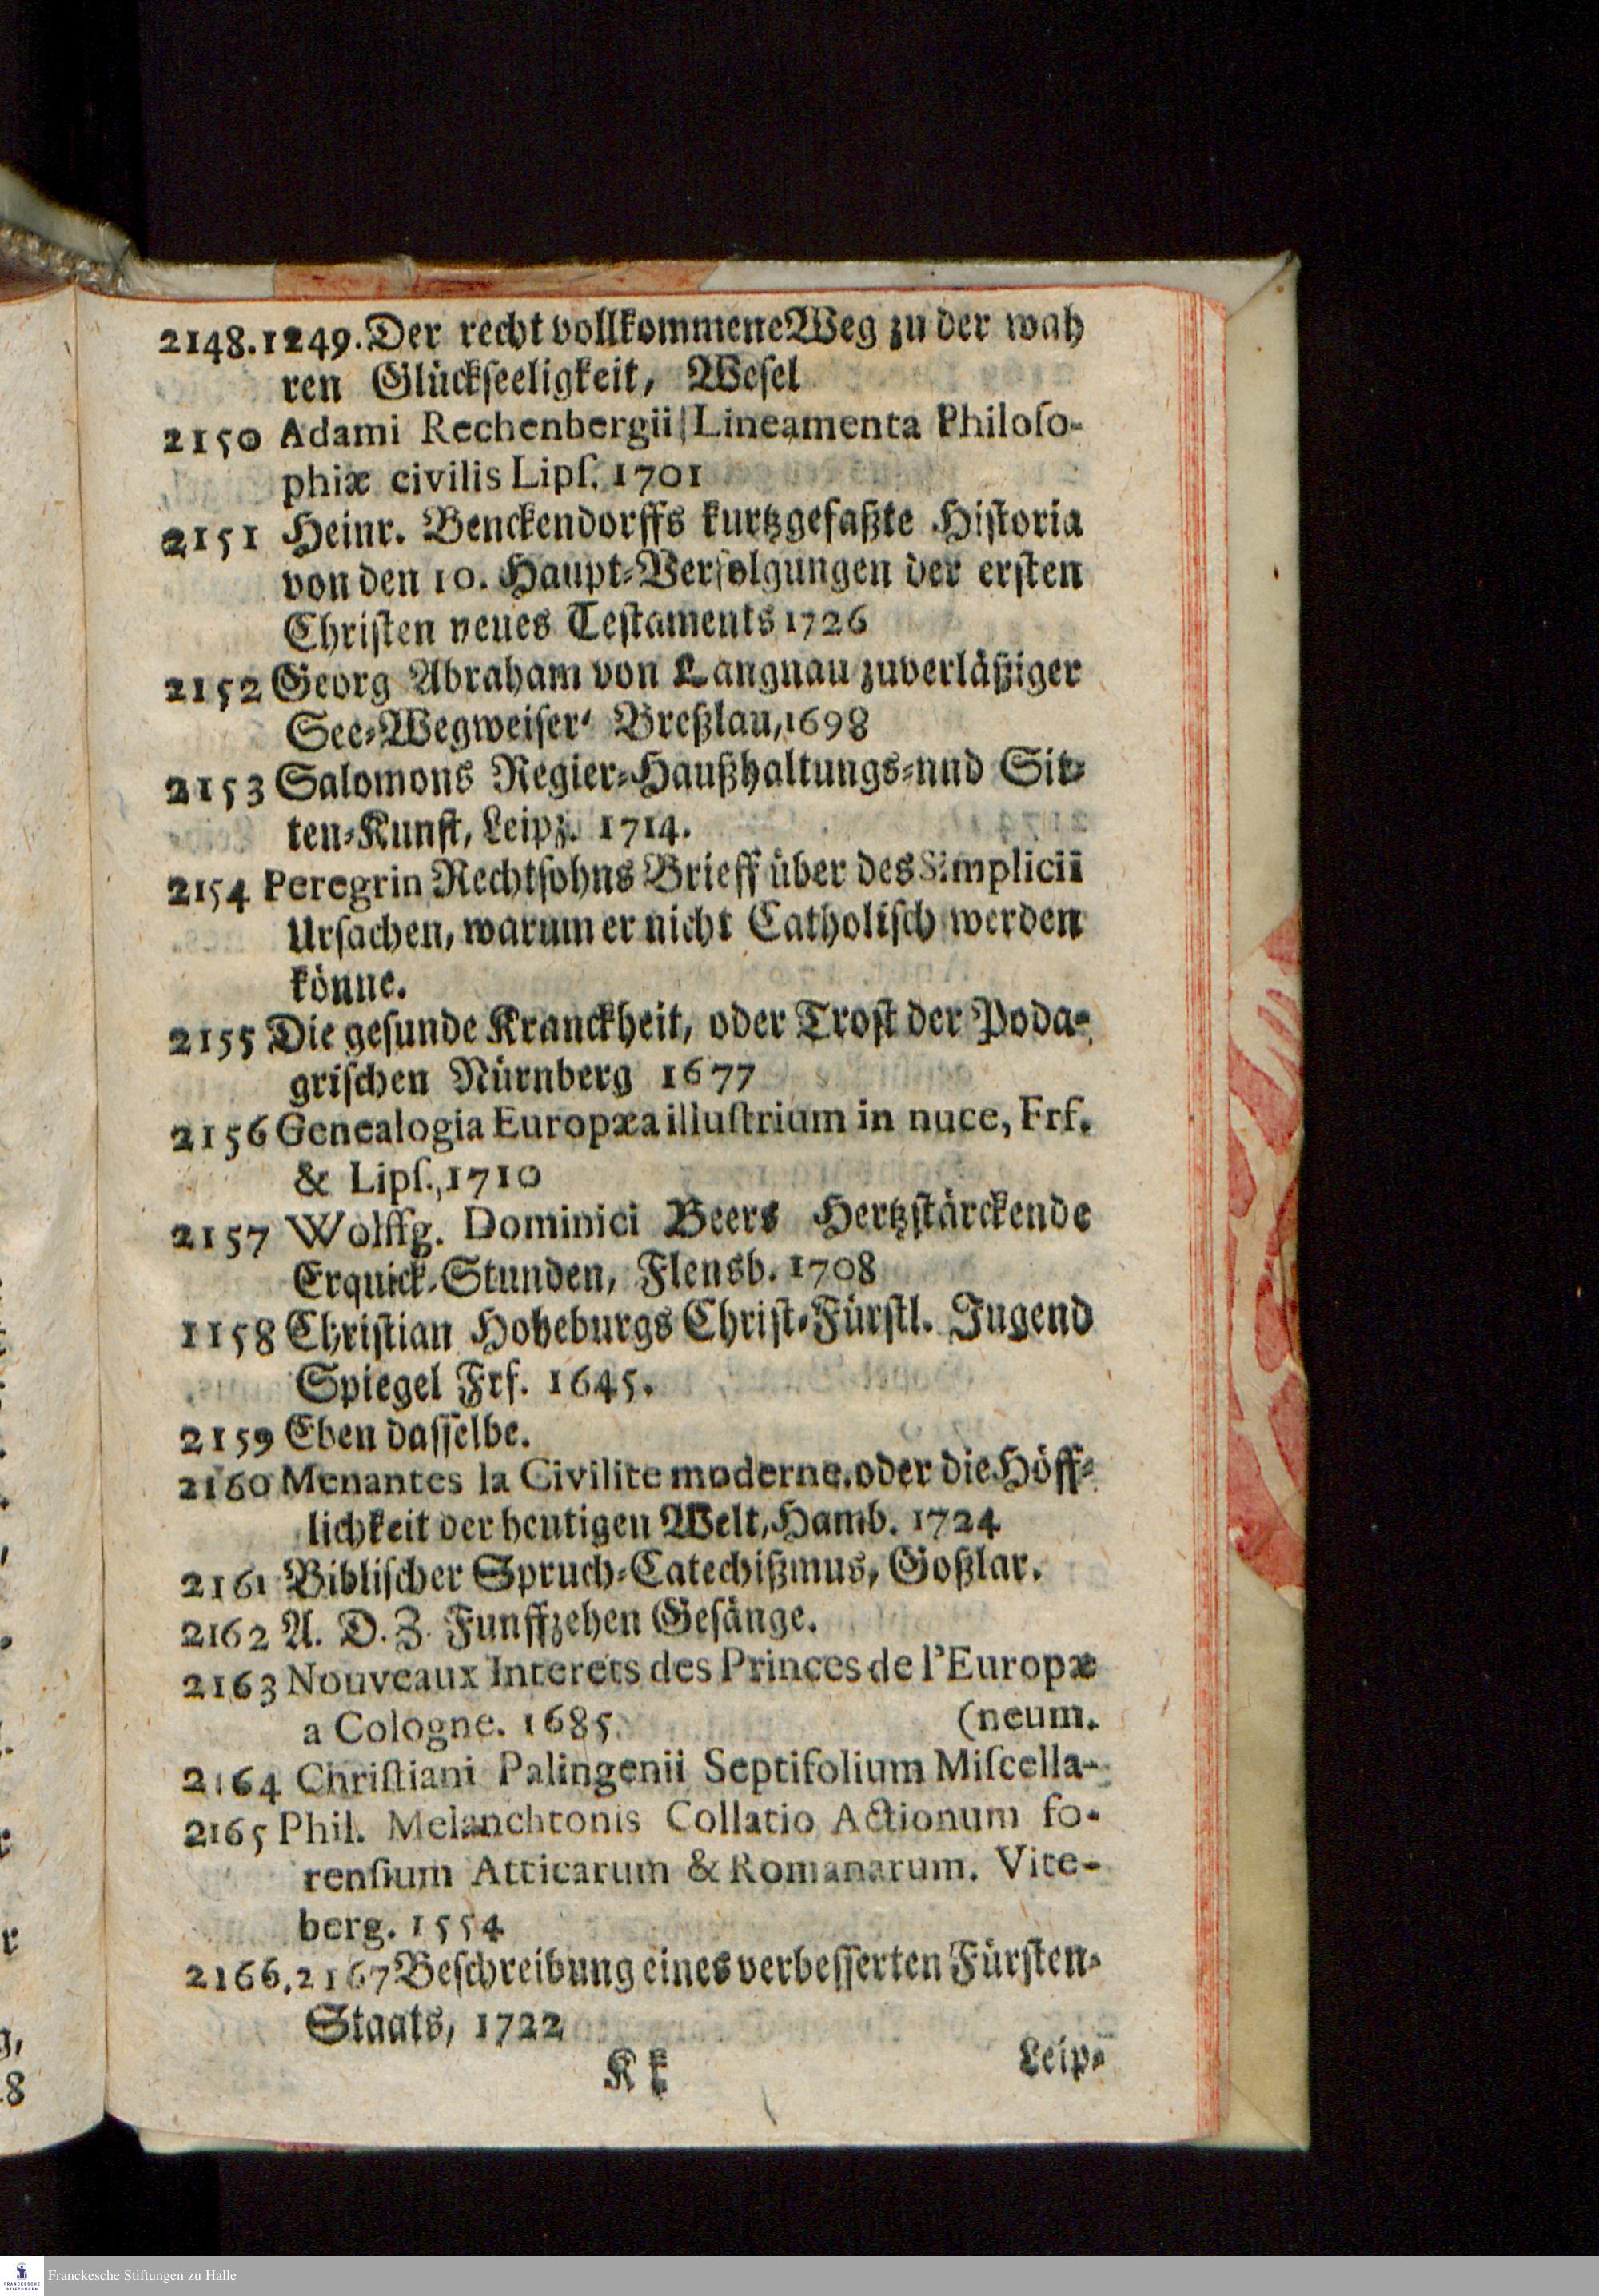 2148.1249.Der recht vollkommene Weg zu der wah
ren Glückſeeligkeit, Weſel
2150 Adami Rechenbergii Lineamenta Philoſo-
phiæ civilis Lipſ. 1701
2151 Heinr. Benckendorffs kurtzgefaßte Hiſtoria
von den 10. Haupt-Verfolgungen der erſten
Chriſten neues Teſtaments 1726
2152 Georg Abraham von Langnau zuverläßiger
See-Wegweiſer, Breßlau, 1698
2153 Salomons Regier-Haußhaltungs-nnd Sit-
ten-Kunſt, Leipz. 1714.
2154 Peregrin Rechtſohns Brieff über des Simplicii
Urſachen, warum er nicht Catholiſch werden
könne.
2155 Die geſunde Kranckheit, oder Troſt der Poda-
griſchen Nürnberg 1677
2156 Genealogia Europæa illuſtrium in nuce, Frf.
& Lipſ., 1710
2157 Wolffg. Dominici Beers Hertzſtärckende
Erquick-Stunden, Flensb. 1708
1158 Chriſtian Hoheburgs Chriſt-Fürſtl. Jugend
Spiegel Frf. 1645.
2159 Eben daſſelbe.
2160 Menantes la Civilite moderne, oder die Höff-
lichkeit der heutigen Welt, Hamb. 1724
2161 Bibliſcher Spruch-Catechißmus, Goßlar.
2162 A. D. Z. Funffzehen Geſänge.
2163 Nouveaux Interets des Princes de l'Europæ
a Cologne. 1685. (neum.
2164 Chriſtiani Palingenii Septifolium Miſcella-
2165 Phil. Melanchtonis Collatio Actionum fo-
renſium Atticarum & Romanarum. Vite-
berg. 1554
2166, 2167 Beſchreibung eines verbeſſerten Fürſten-
Staats, 1722
Kk Leip-
Franckesche Stiftungen zu Halle